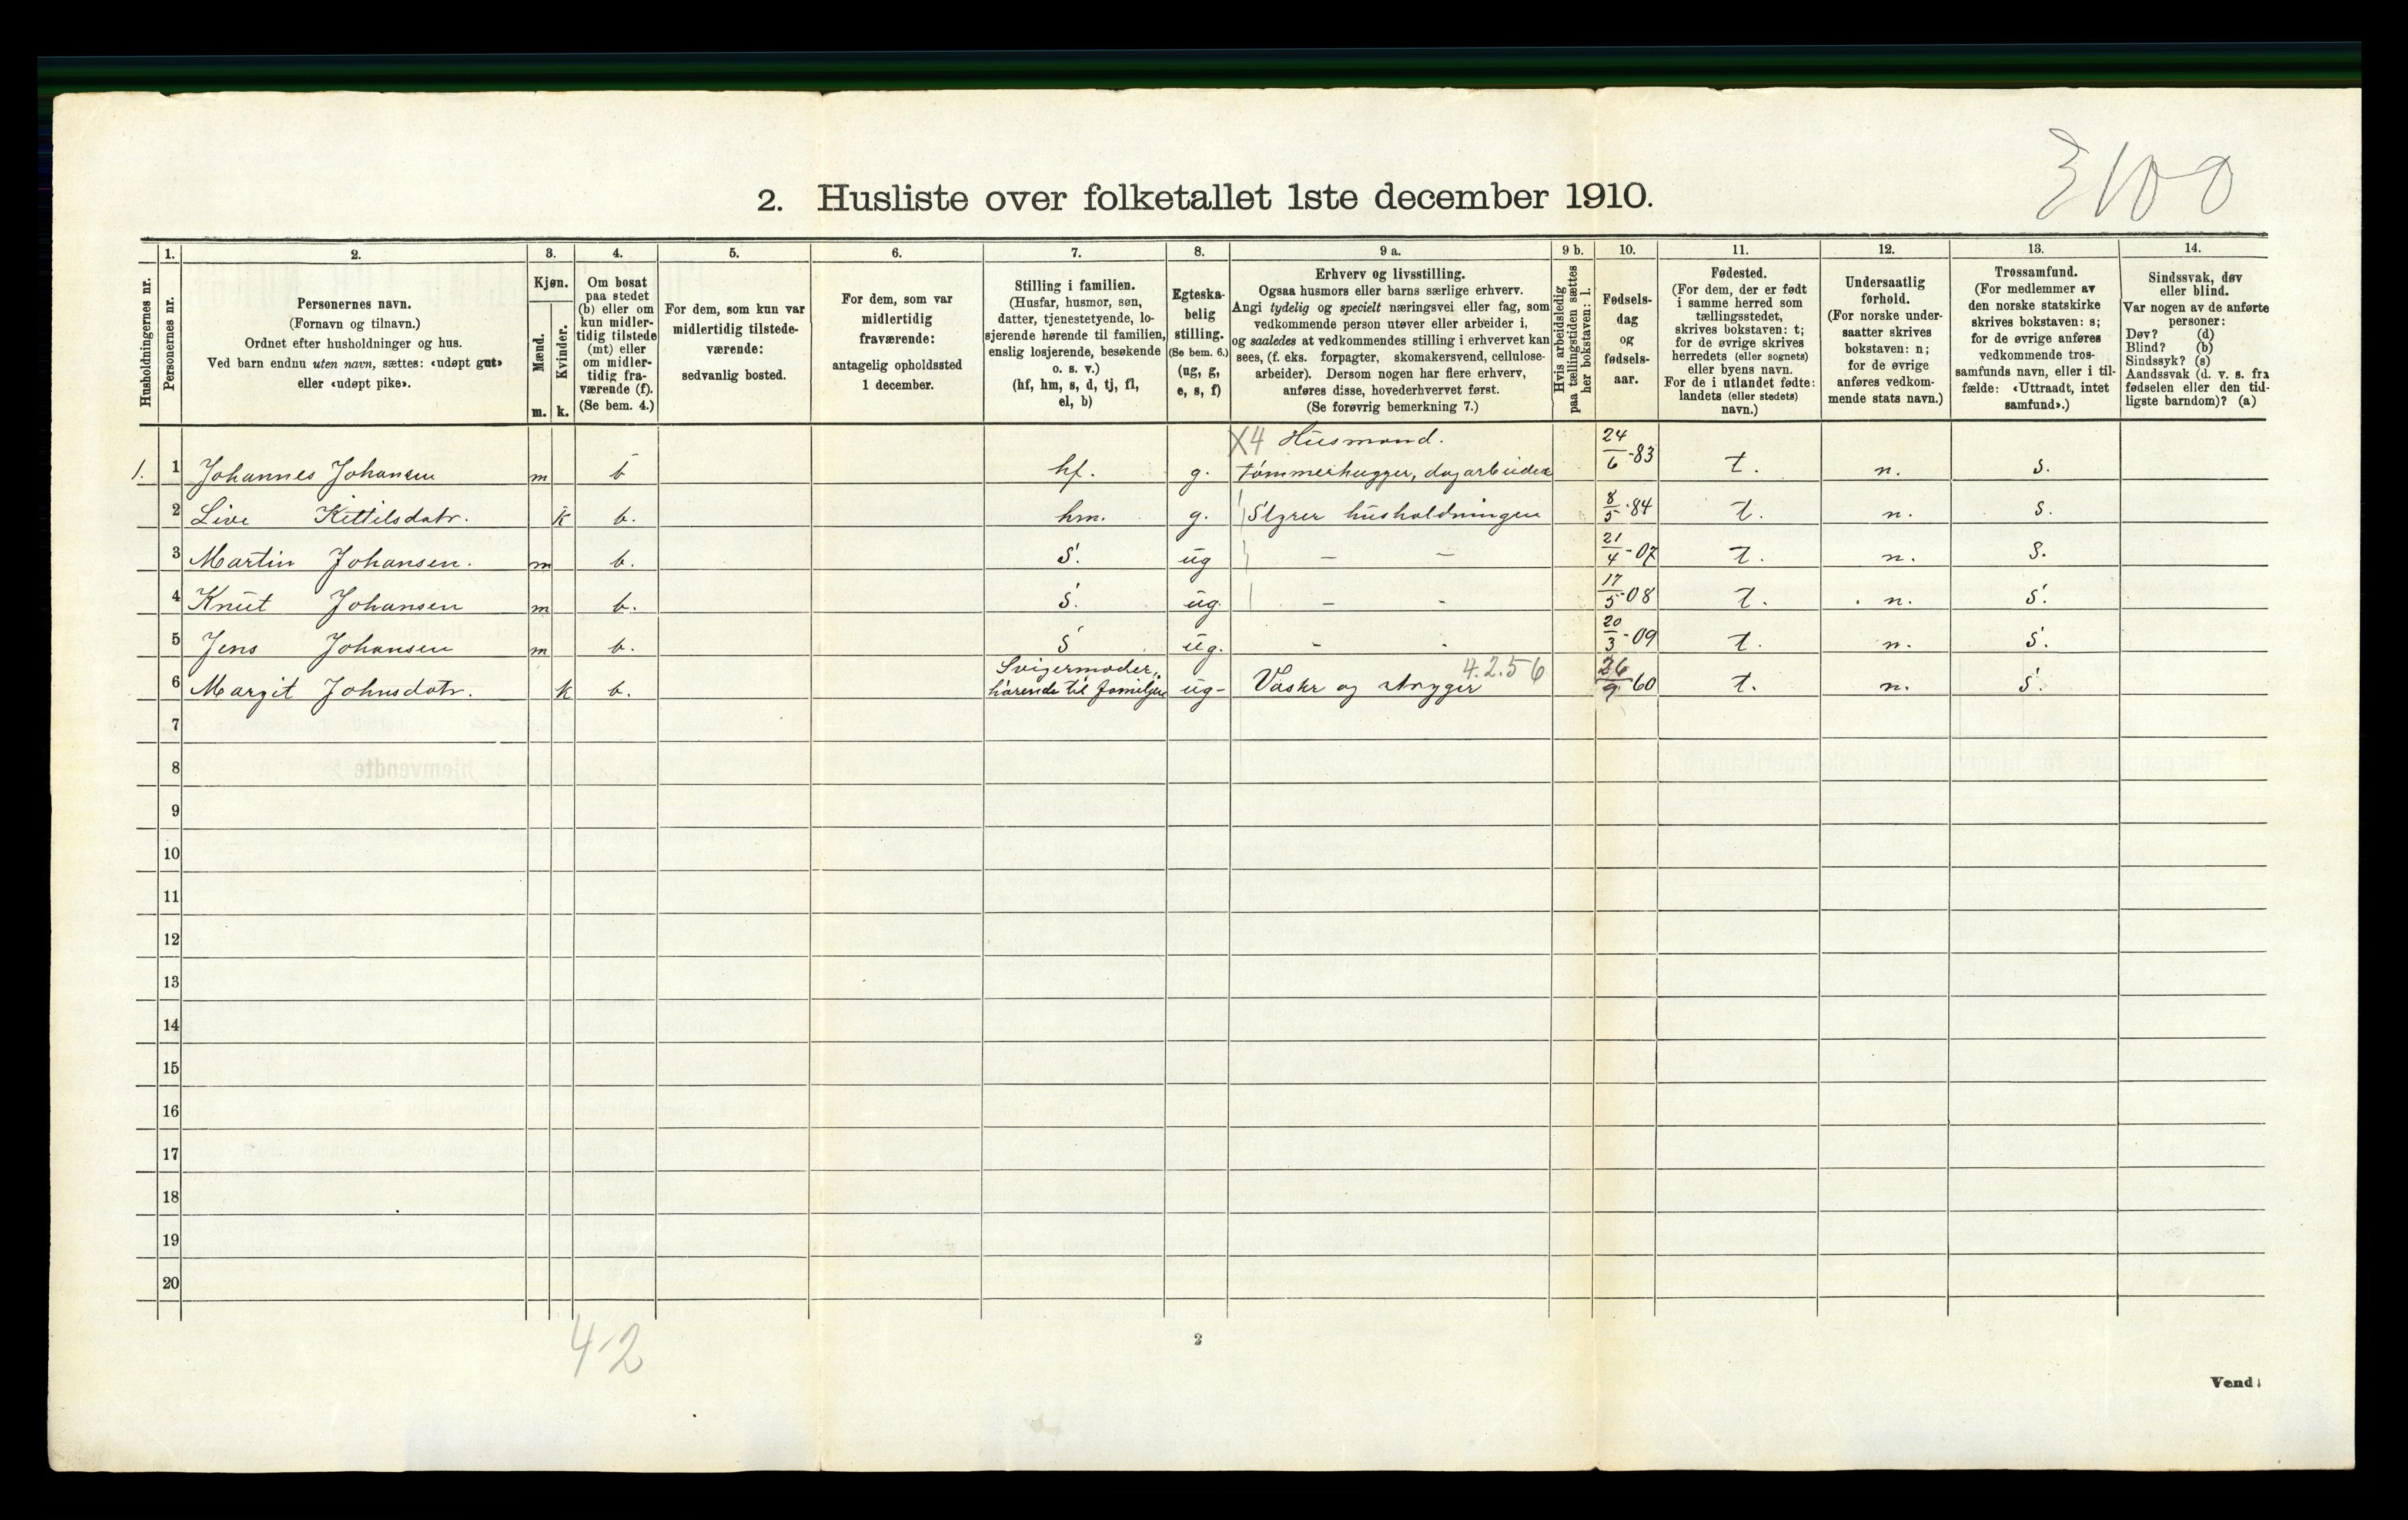 3100
2. Husliste over folketallet 1ste december 1910.
1. 2. 3. 4. 5. 6. 7. 8. 9 a. 9 b. 10. 11. 12. 13. 14.
Husholdningernes nr.
Personernes nr.
Personernes navn.
(Fornavn og tilnavn.)
Ordnet efter husholdninger og hus.
Ved barn endnu uten navn, sættes: «udøpt gut»
eller «udøpt pike».
Kjøn.
Mænd.
Kvinder.
m. k.
Om bosat
paa stedet
(b) eller om
kun midler-
tidig tilstede
(mt) eller
om midler-
tidig fra-
værende (f).
(Se bem. 4.)
For dem, som kun var
midlertidig tilstede-
værende:
sedvanlig bosted.
For dem, som var
midlertidig
fraværende:
antagelig opholdssted
1 december.
Stilling i familien.
(Husfar, husmor, søn,
datter, tjenestetyende, lo-
sjerende hørende til familien,
enslig losjerende, besøkende
o. s. v.)
(hf, hm, s, d, tj, fl,
el, b)
Egteska-
belig
stilling.
(Se bem. 6.)
(ug, g,
e, s, f)
Erhverv og livsstilling.
Ogsaa husmors eller barns særlige erhverv.
Angi tydelig og specielt næringsvei eller fag, som
vedkommende person utøver eller arbeider i,
og saaledes at vedkommendes stilling i erhvervet kan
sees, (f. eks. forpagter, skomakersvend, cellulose-
arbeider). Dersom nogen har flere erhverv,
anføres disse, hovederhvervet først.
(Se forøvrig bemerkning 7.)
Hvis arbeidsledig
paa tællingstiden sættes
her bokstaven: l.
Fødsels-
dag
og
fødsels-
aar.
Fødested.
(For dem, der er født
i samme herred som
tællingsstedet,
skrives bokstaven: t;
for de øvrige skrives
herredets (eller sognets)
eller byens navn.
For de i utlandet fødte:
landets (eller stedets)
navn.)
Undersaatlig
forhold.
(For norske under-
saatter skrives
bokstaven: n;
for de øvrige
anføres vedkom-
mende stats navn.)
Trossamfund.
(For medlemmer av
den norske statskirke
skrives bokstaven: s;
for de øvrige anføres
vedkommende tros-
samfunds navn, eller i til-
fælde: «Uttraadt, intet
samfund».)
Sindssvak, døv
eller blind.
Var nogen av de anførte
personer:
Døv? (d)
Blind? (b)
Sindssyk? (s)
Aandssvak (d. v. s. fra
fødselen eller den tid-
ligste barndom)? (a)
X4 Husmand.
1. 1 Johannes Johansen m b hf. g. tømmerhugger, dagarbeider 24/6-83 t. n. s.
2 Live Kittilsdatr. k b. hm. g. Styrer husholdningen 8/5-84 t. n. s.
3 Martin Johansen. m b. s. ug - - 21/4-07 t. n. s.
4 Knut Johansen m b. s. ug. - - 17/5-08 t. n. s.
5 Jens Johansen m b. s ug. - - 20/3-09 t. n. s.
Svigermoder, 4.2.56
6 Margit Johnsdatr. k b. hørende til familjen ug- Vasker og stryger 26/9 60 t. n. s.
7
8
9
10
11
12
13
14
15
16
17
18
19
20
4-2
2
Vend!